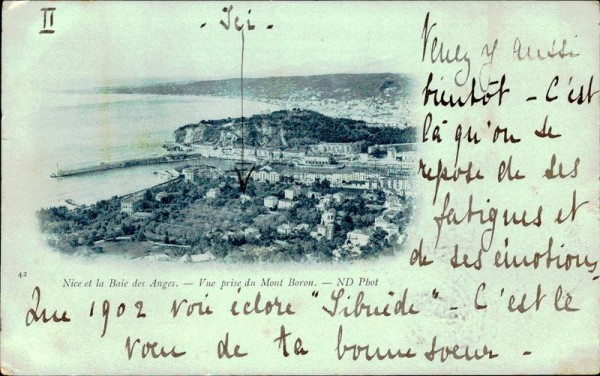 II
- Ici -
Venez y aussi
bientôt - C'est
là qu'on se
repose de ses
fatigues et
de ses émotions
42
Nice et la Baie des Anges. — Vue prise du Mont Boron. — ND Phot
Que 1902 voie éclore "Sibuède" - C'est le
vœu de ta bonne soeur -